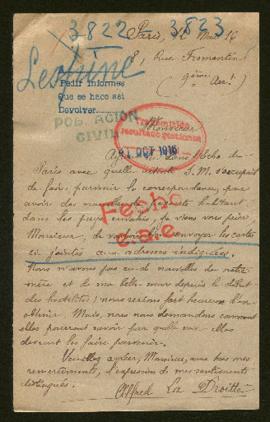 3822 3823
Paris, 2 Mai 16
8, Rue Fromentin
(9ème Arrt.)
Lestrine
Pedir informes
Que se hace así
Devolver
POBLACION
CIVIL
Monsieur
Transmitido
resultado gestiones
OCT 1916
dans l'Echo de
Paris avec quelle S. M. s'occupait
de faire parvenir les correspondances, pour
avoir des nouvelles habitant
dans les pays envahis, je viens vous prier
Monsieur, de vouloir envoyer les cartes
ci jointes aux adresses indiquées.
Nous n'avons pas eu de nouvelles de notre
mère et de ma belle-sœur depuis le début
des hostilités; nous serions fort heureux d'en
obtenir. Mais, nous nous demandons comment
elles pourront savoir par quelle voie elles
devront les faire parvenir.
Veuillez agréer, Monsieur, avec tous mes
remerciements, l'expression de mes sentiments
distingués.
Fecho
c.a.e.
La Droitte